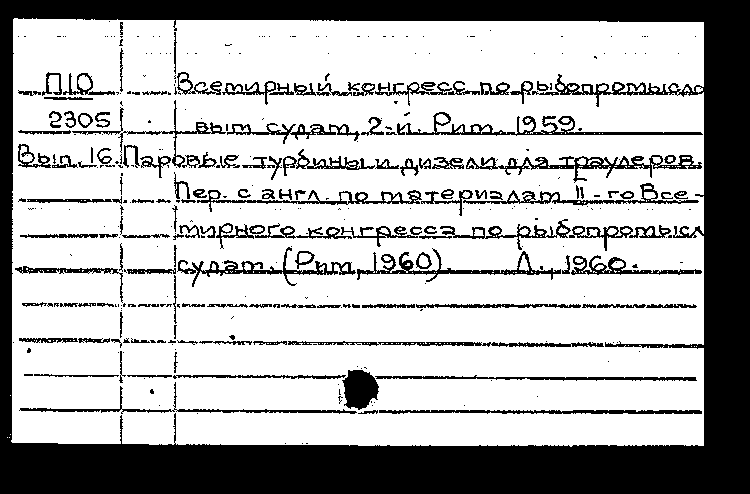 П10 Всемирный конгресс по рыбопромысло
2305 вым судам, 2-й. Рим. 1959.
Вып. 16. Паровые турбины и дизели для траулеров.
Пер. с англ. по материалам II-го Все-
мирного конгресса по рыбопромысл
судам. (Рим, 1960). Л., 1960.